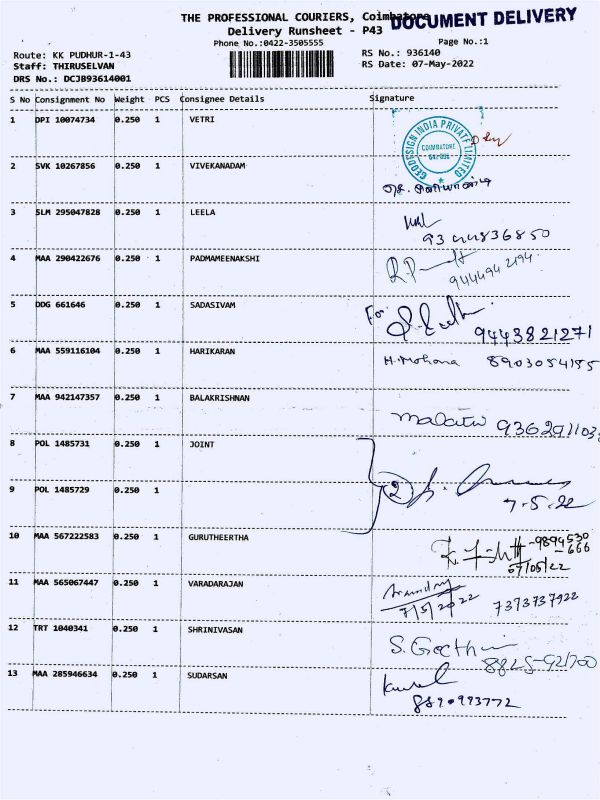 THE PROFESSIONAL COURIERS, Coimbatore
DOCUMENT DELIVERY
Delivery Runsheet - P43
Phone No.:0422-3505555
Page No.:1
Route: KK PUDHUR-1-43
RS No.: 936140
Staff: THIRUSELVAN
RS Date: 07-May-2022
DRS No.: DCJB93614001
S No Consignment No Weight PCS Consignee Details Signature
1 DPI 10074734 0.250 1 VETRI
GEODESIGN INDIA PRIVATE LIMITED
COIMBATORE
2 SVK 10267856 0.250 1 VIVEKANADAM
3 SLM 295047828 0.250 1 LEELA
4 MAA 290422676 0.250 1 PADMAMEENAKSHI
9444942194
5 DDG 661646 0.250 1 SADASIVAM For
9443821271
6 MAA 559116104 0.250 1 HARIKARAN H.Mohana 8903054155
7 MAA 942147357 0.250 1 BALAKRISHNAN
8 POL 1485731 0.250 1 JOINT
2
9 POL 1485729 0.250 1 7-5-22
10 MAA 567222583 0.250 1 GURUTHEERTHA -9894530
-666
07/05/22
11 MAA 565067447 0.250 1 VARADARAJAN
7/5/2022 7373737922
12 TRT 1040341 0.250 1 SHRINIVASAN S. Geetha
13 MAA 285946634 0.250 1 SUDARSAN